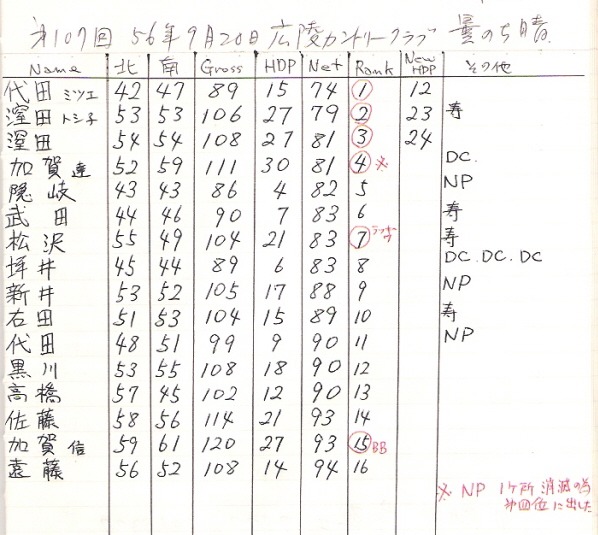 第107回 56年9月20日 広陵カントリークラブ 曇のち晴
Name 北 南 Gross HDP Net Rank New HDP その他
代田ミツエ 42 47 89 15 74 ① 12
窪田トシ子 53 53 106 27 79 ② 23 寿
窪田 54 54 108 27 81 ③ 24
加賀達 52 59 111 30 81 ④※ DC.
隠岐 43 43 86 4 82 5 NP
武田 44 46 90 7 83 6 寿
松沢 55 49 104 21 83 ⑦ラッキー7 寿
坪井 45 44 89 6 83 8 DC.DC.DC
新井 53 52 105 17 88 9 NP
右田 51 53 104 15 89 10 寿
代田 48 51 99 9 90 11 NP
黒川 53 55 108 18 90 12
高橋 57 45 102 12 90 13
佐藤 58 56 114 21 93 14
加賀信 59 61 120 27 93 ⑮BB
遠藤 56 52 108 14 94 16
※ NP 1ヶ所消滅の為
第四位に出した